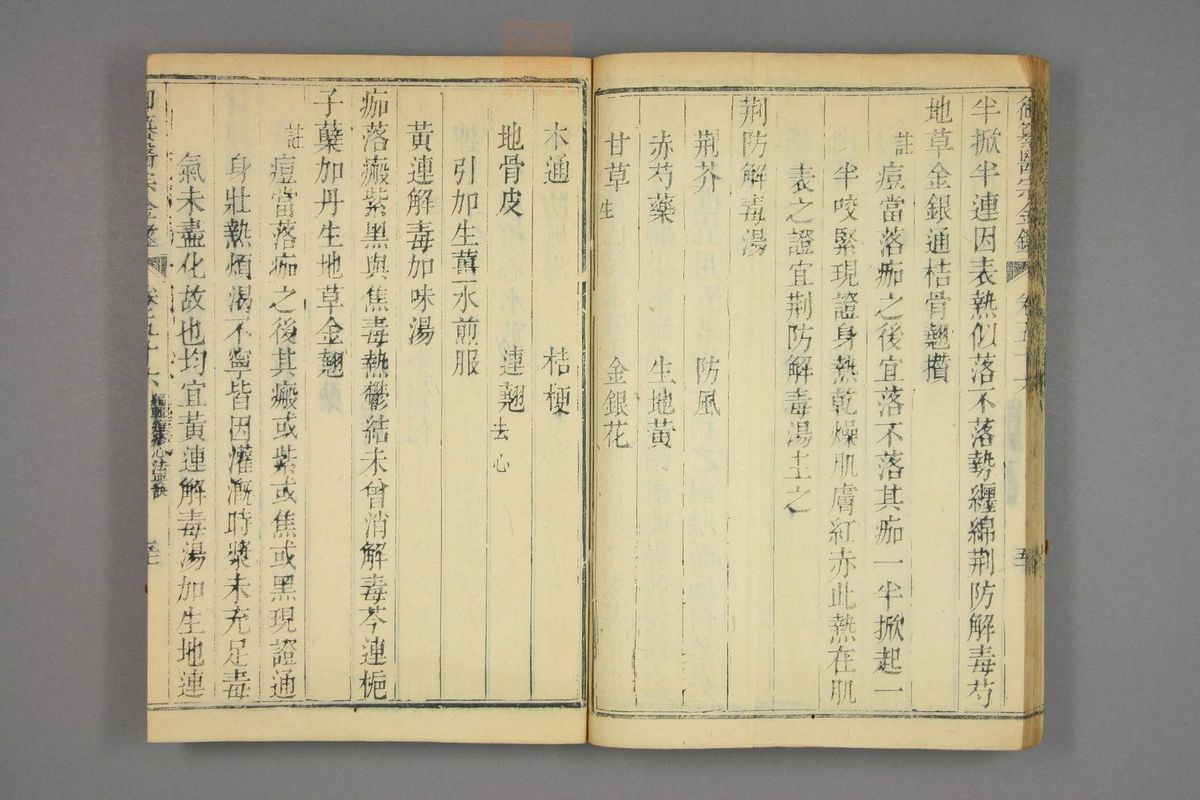 御纂醫宗金鑑 卷五十六 五十
半掀半連因表熱似落不落勢纏綿荆防解毒芍
地草金銀通桔骨翹攢
註痘當落痂之後宜落不落其痂一半掀起一
半咬緊現證身熱乾燥肌膚紅赤此熱在肌
表之證宜荆防解毒湯主之
荆防解毒湯
荆芥 防風
赤芍藥 生地黃
甘草生 金銀花
木通 桔梗
地骨皮 連翹去心
引加生薑水煎服
黃連解毒加味湯
痂落瘢紫黑與焦毒熱鬱結未曾消解毒芩連梔
子蘗加丹生地草金翹
註痘當落痂之後其瘢或紫或焦或黑現證通
身壯熱煩渴不寧皆因灌漑時漿未充足毒
氣未盡化故也均宜黃連解毒湯加生地連
御纂醫宗金鑑 卷五十六 心法要訣